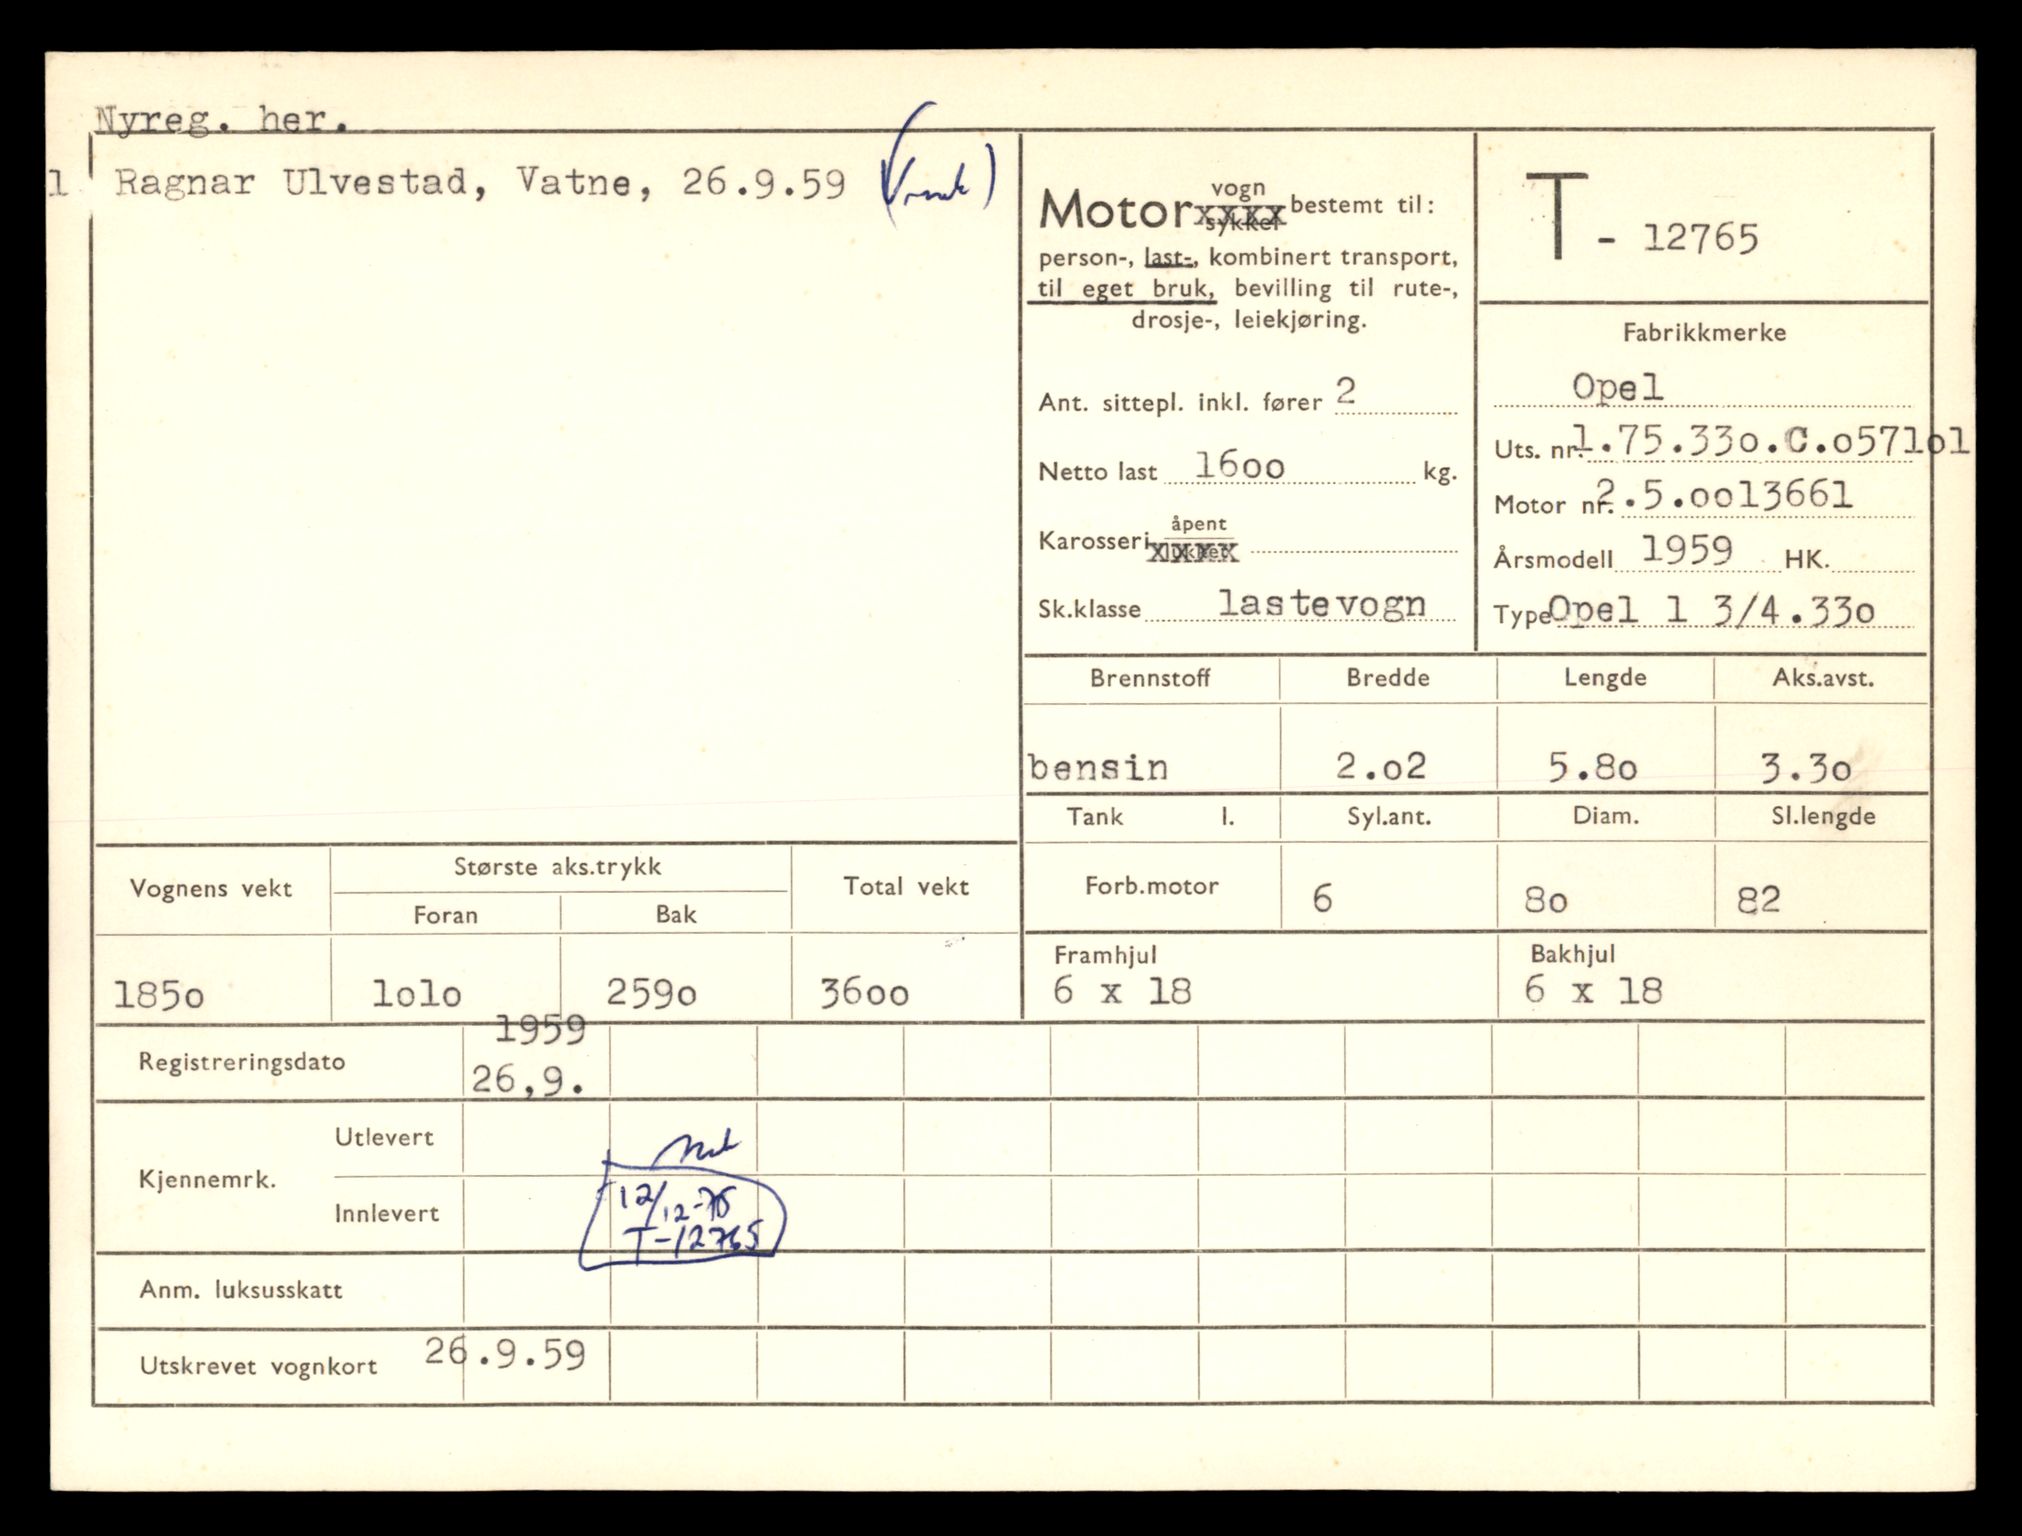 Nyreg. her.
1 Ragnar Ulvestad, Vatne, 26.9.59
Motor vogn sykkel bestemt til:
person-, last-, kombinert transport,
til eget bruk, bevilling til rute-,
drosje-, leiekjøring.
T - 12765
Ant. sittepl. inkl. fører 2
Netto last 16oo kg.
Karosseri åpent lukket
Sk.klasse lastevogn
Fabrikkmerke
Opel
Uts. nr. 1.75.33o.C.o571o1
Motor nr. 2.5.oo13661
Årsmodell 1959 HK.
Type Opel 1 3/4.33o
Brennstoff Bredde Lengde Aks.avst.
bensin 2.o2 5.8o 3.3o
Tank l. Syl.ant. Diam. Sl.lengde
Forb.motor 6 8o 82
Framhjul Bakhjul
6 x 18 6 x 18
Vognens vekt Største aks.trykk Total vekt
Foran Bak
185o 1o1o 259o 36oo
1959
Registreringsdato 26,9.
Kjennemrk. Utlevert
Innlevert 12/12-75
T-12765
Anm. luksusskatt
Utskrevet vognkort 26.9.59